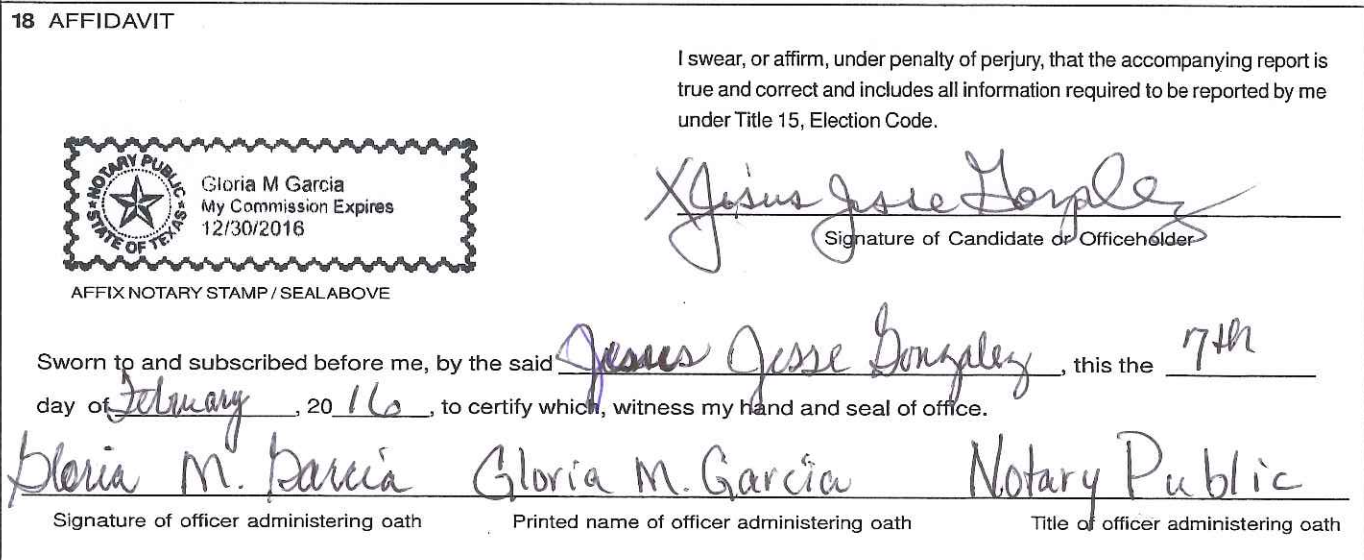 18 AFFIDAVIT
I swear, or affirm, under penalty of perjury, that the accompanying report is
true and correct and includes all information required to be reported by me
under Title 15, Election Code.
NOTARY PUBLIC
STATE OF TEXAS
Gloria M Garcia
My Commission Expires
12/30/2016
X Jesus Jesse Gonzalez
Signature of Candidate or Officeholder
AFFIX NOTARY STAMP / SEALABOVE
Sworn to and subscribed before me, by the said Jesus Jesse Gonzalez, this the 7th
day of February, 20 16, to certify which, witness my hand and seal of office.
Gloria M. Garcia Gloria M. Garcia Notary Public
Signature of officer administering oath Printed name of officer administering oath Title of officer administering oath